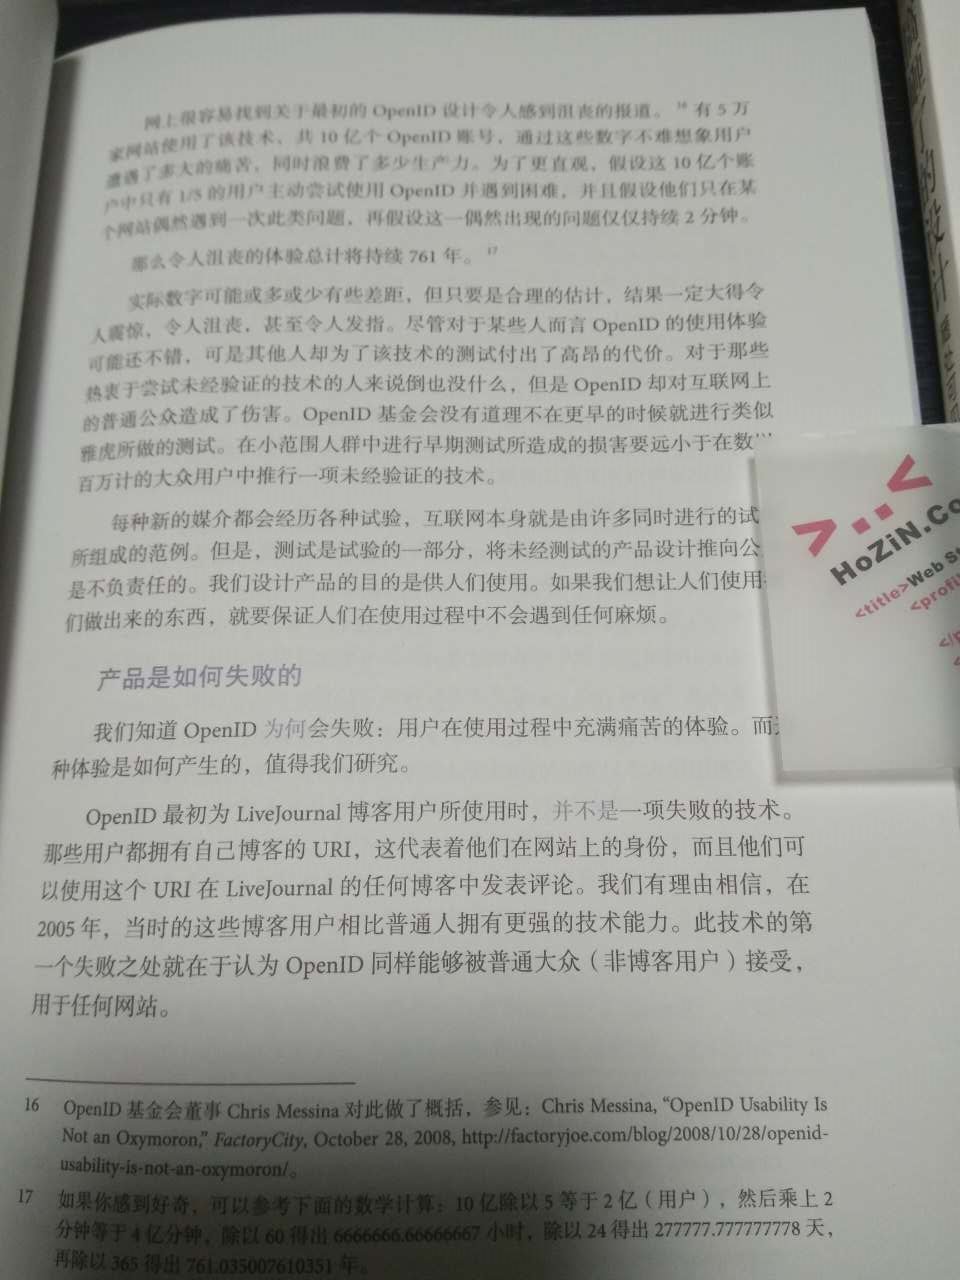 网上很容易找到关于最初的 OpenID 设计令人感到沮丧的报道。16 有 5 万
家网站使用了该技术，共 10 亿个 OpenID 账号，通过这些数字不难想象用户
遭遇了多大的痛苦，同时浪费了多少生产力。为了更直观，假设这 10 亿个账
户中只有 1/5 的用户主动尝试使用 OpenID 并遇到困难，并且假设他们只在某
个网站偶然遇到一次此类问题，再假设这一偶然出现的问题仅仅持续 2 分钟。
那么令人沮丧的体验总计将持续 761 年。17
实际数字可能或多或少有些差距，但只要是合理的估计，结果一定大得令
人震惊、令人沮丧，甚至令人发指。尽管对于某些人而言 OpenID 的使用体验
可能还不错，可是其他人却为了该技术的测试付出了高昂的代价。对于那些
热衷于尝试未经验证的技术的人来说倒也没什么，但是 OpenID 却对互联网上
的普通公众造成了伤害。OpenID 基金会没有道理不在更早的时候就进行类似
雅虎所做的测试。在小范围人群中进行早期测试所造成的损害要远小于在数
百万计的大众用户中推行一项未经验证的技术。
每种新的媒介都会经历各种试验，互联网本身就是由许多同时进行的试
所组成的范例。但是，测试是试验的一部分，将未经测试的产品设计推向公
是不负责任的。我们设计产品的目的是供人们使用。如果我们想让人们使用
们做出来的东西，就要保证人们在使用过程中不会遇到任何麻烦。
产品是如何失败的
我们知道 OpenID 为何会失败：用户在使用过程中充满痛苦的体验。而
种体验是如何产生的，值得我们研究。
OpenID 最初为 LiveJournal 博客用户所使用时，并不是一项失败的技术。
那些用户都拥有自己博客的 URI，这代表着他们在网站上的身份，而且他们可
以使用这个 URI 在 LiveJournal 的任何博客中发表评论。我们有理由相信，在
2005 年，当时的这些博客用户相比普通人拥有更强的技术能力。此技术的第
一个失败之处就在于认为 OpenID 同样能够被普通大众（非博客用户）接受，
用于任何网站。
16 OpenID 基金会董事 Chris Messina 对此做了概括，参见：Chris Messina, “OpenID Usability Is
Not an Oxymoron,” FactoryCity, October 28, 2008, http://factoryjoe.com/blog/2008/10/28/openid-
usability-is-not-an-oxymoron/。
17 如果你感到好奇，可以参考下面的数学计算：10 亿除以 5 等于 2 亿（用户），然后乘上 2
分钟等于 4 亿分钟，除以 60 得出 6666666.66666667 小时，除以 24 得出 277777.777777778 天，
再除以 365 得出 761.035007610351 年。
>:<
HoZiN.Co
<title>Web St
<profil
</p
的设计